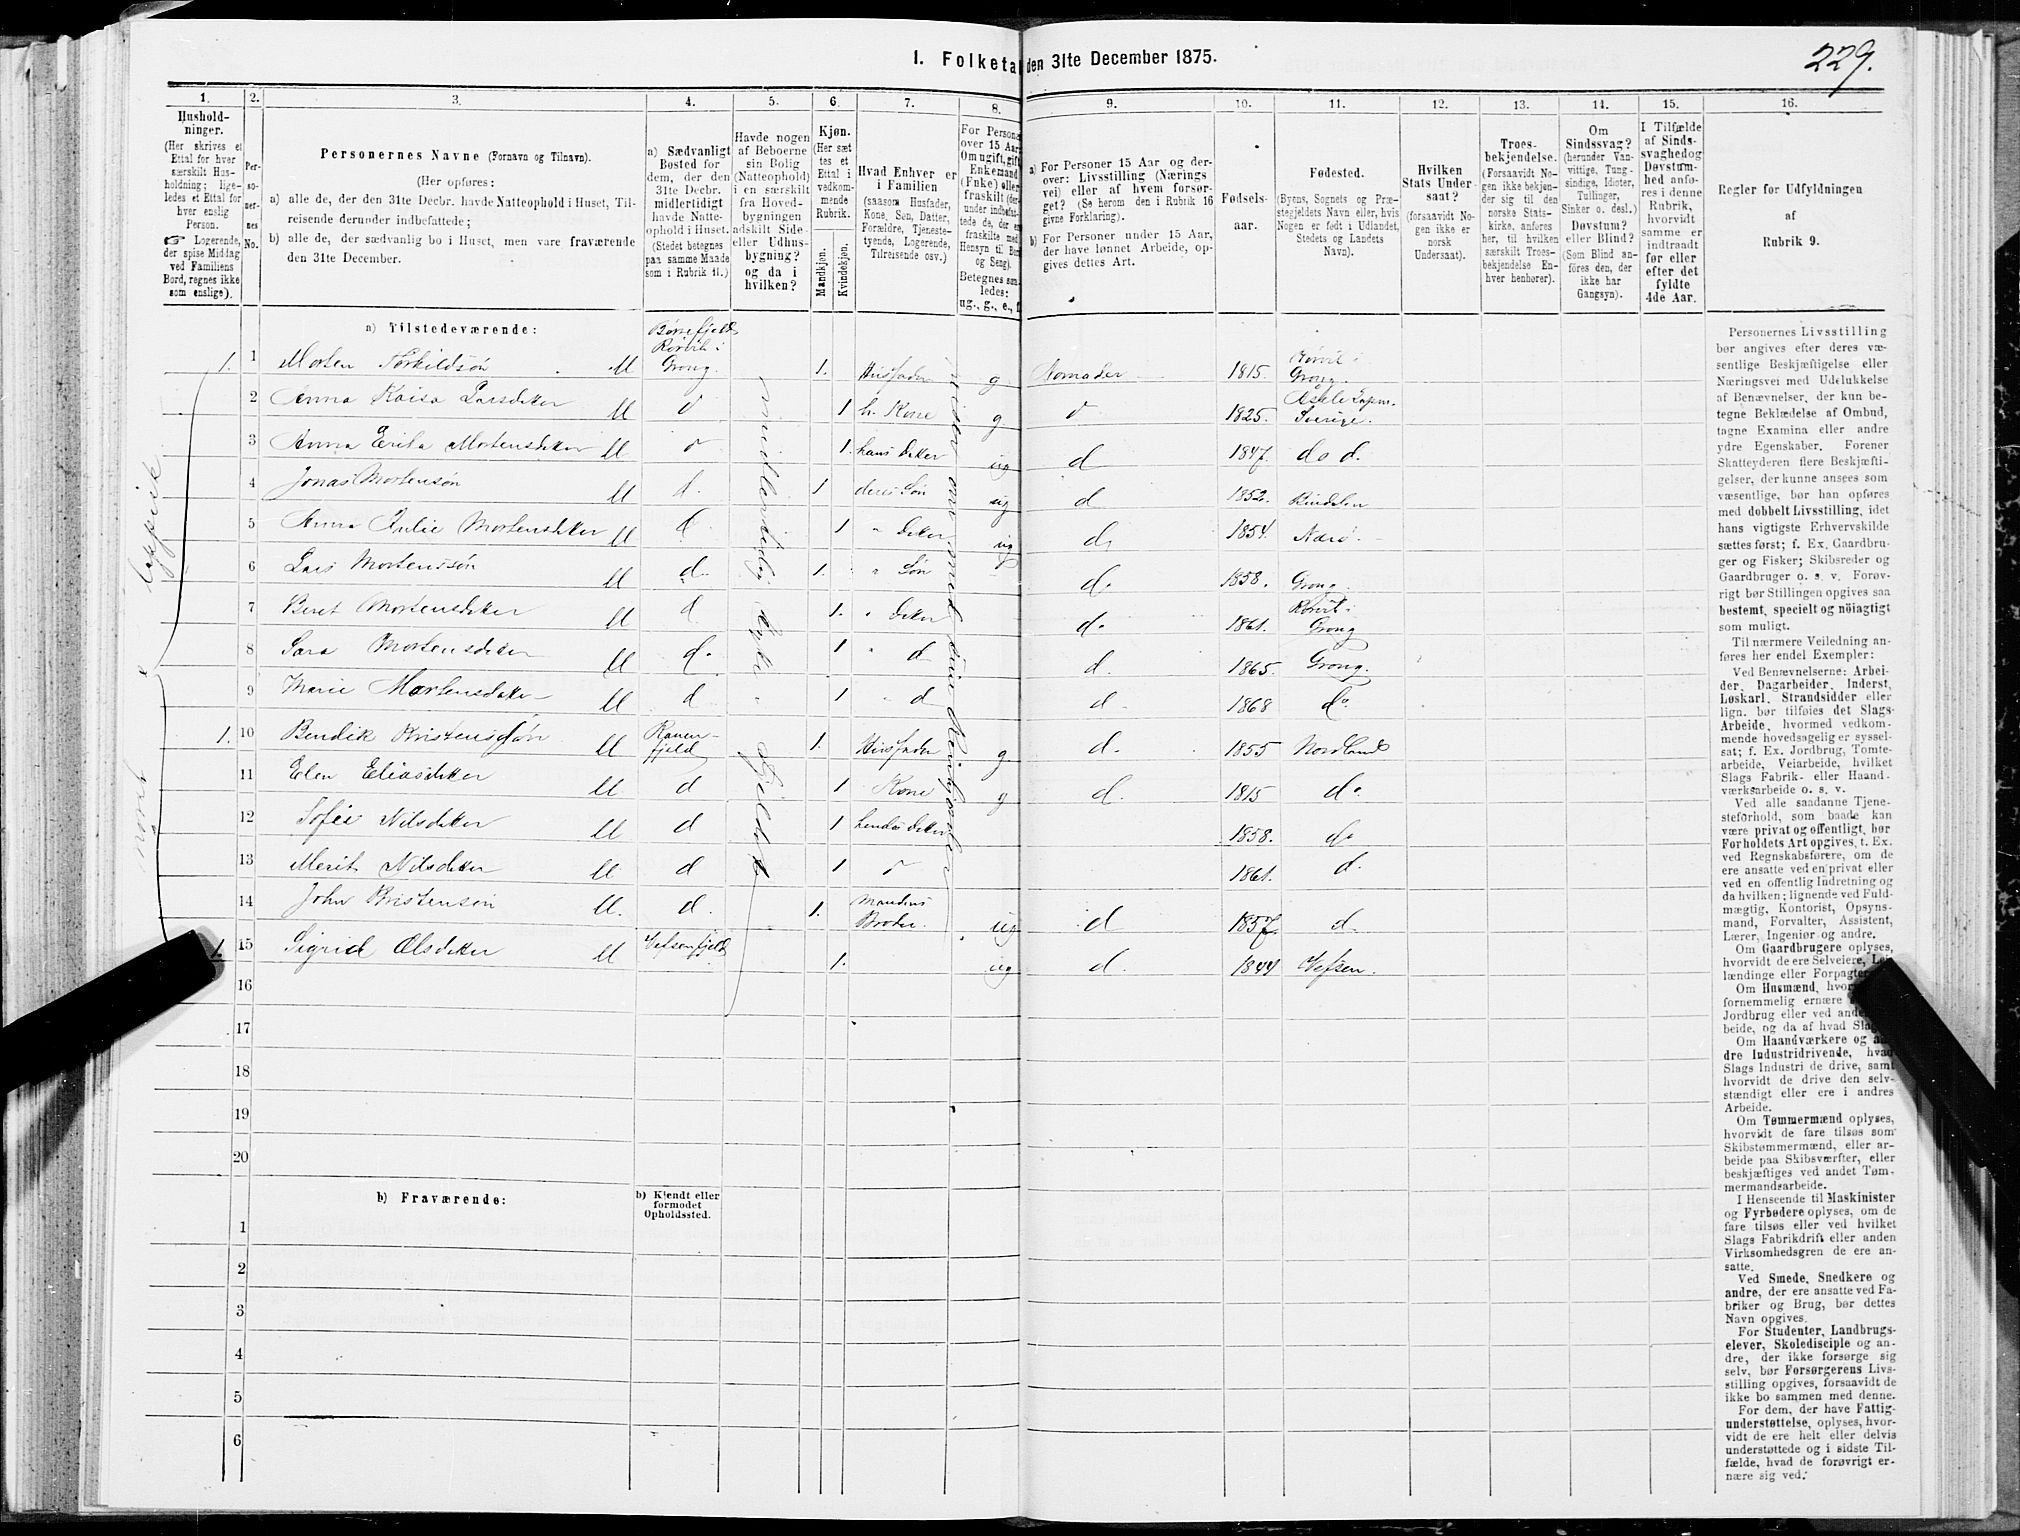 229.
I. Folketa den 31te December 1875.
1. 2. 3. 4. 5. 6. 7. 8. 9. 10. 11. 12. 13. 14. 15. 16.
Hushold-
ninger.
(Her skrives et
Ettal for hver
særskilt Hus-
holdning; lige-
ledes et Ettal for
hver enslig
Person.
☞ Logerende,
der spise Middag
ved Familiens
Bord, regnes ikke
som enslige).
Per-
so-
ner-
nes
No.
Personernes Navne (Fornavn og Tilnavn).
(Her opføres:
a) alle de, der den 31te Decbr. havde Natteophold i Huset, Til-
reisende derunder indbefattede;
b) alle de, der sædvanlig bo i Huset, men vare fraværende
den 31te December.
a) Sædvanligt
Bosted for
dem, der den
31te Decbr.
midlertidigt
havde Natte-
ophold i Huset.
(Stedet betegnes
paa samme Maade
som i Rubrik 11.)
Havde nogen
af Beboerne
sin Bolig
(Natteophold)
i en særskilt
fra Hoved-
bygningen
adskilt Side-
eller Udhus-
bygning?
og da i
hvilken?
Kjøn.
(Her sæt
tes et
Ettal i
vedkom-
mende
Rubrik.
Mandkjøn.
Kvindekjøn.
Hvad Enhver er
i Familien
(saasom Husfader,
Kone, Søn, Datter,
Forældre, Tjeneste-
tyende, Logerende,
Tilreisende osv.)
For Persone
over 15 Aar
Om ugift, gift
Enkemand
(Enke) eller
fraskilt (der-
under indbefat-
tede de, der er
fraskilte med
Hensyn til Bord
og Seng).
Betegnes saa-
ledes:
ug., g., e., f.
a) For Personer 15 Aar og der-
over: Livsstilling (Nærings
vei) eller af hvem forsør-
get? (Se herom den i Rubrik 16
givne Forklaring).
b) For Personer under 15 Aar,
der have lønnet Arbeide, op-
gives dettes Art.
Fødsels-
aar.
Fødested.
(Byens, Sognets og Præ-
stegjeldets Navn eller, hvis
Nogen er født i Udlandet,
Stedets og Landets
Navn).
Hvilken
Stats Under-
saat?
(forsaavidt No-
gen ikke er
norsk
Undersaat).
Troes-
bekjendelse.
(Forsaavidt No-
gen ikke bekjen-
der sig til den
norske Stats-
kirke, anføres
her, til hvilken
særskilt Troes-
bekjendelse En-
hver henhører).
Om
Sindssvag?
(herunder Van-
vittige, Tung-
sindige, Idioter,
Tullinger,
Sinker o. desl.)
Døvstum?
eller Blind?
(Som Blind an-
føres den, der
ikke har
Gangsyn).
I Tilfælde
af Sinds-
svaghed og
Døvstum-
hed anfø-
res i denne
Rubrik,
hvorvidt
samme er
indtraadt
før eller
efter det
fyldte
4de Aar.
Regler for Udfyldningen
af
Rubrik 9.
a) Tilstedeværende:
1. 1 Morten Torkildsøn M Børgefjeld Rørvik i Grong. 1. Huusfader g Nomader 1815. Rørvik i Grong.
2 Anna Kaisa Larsdtter M d 1 h. Kone g d 1825. Åsele Lapm. Sverige.
3 Anna Erika Mortensdtter M d 1. hans dtter ug d 1847. do d.
4 Jonas Mortensøn M d. 1 deres Søn ug d 1852.
5 Anna Julie Mortensdtter M d 1 " dtter ug do 1854. Nærø.
6 Lars Mortensøn M d. 1. " Søn do 1858. Grong.
7 Beret Mortensdtter M d 1. " dtter do 1861. Rørvik i Grong
8 Sara Mortensdtter M do 1 " d d. 1865. Grong.
9 Marie Mortensdtter M d 1 " d d 1868 do
1. 10 Bendik Kristensøn M Ranenfjeld 1. Huusfader g d. 1855 Nordland
11 Elen Eliasdtter M d 1 Kone g d. 1815 do
12 Sofie Nilsdtter M d 1 hendes dtter 1858. do
13 Merit Nilsdtter M d 1 d 1861. d.
14 John Kristensøn M. d. 1. Mandens Broder. ug d 1857. d.
1. 15 Sigrid Olsdtter M Vefsenfjeld 1. ug d. 1844 Vefsen.
midlertidig
norsk lappisk
16
17
18
19
20
b) Fraværende:
b) Kjendt eller
formodet
Opholdssted.
1
2
3
4
5
6
Personernes Livsstilling
bør angives efter deres væ-
sentlige Beskjæftigelse eller
Næringsvei med Udelukkelse
af Benævnelser, der kun be-
tegne Beklædelse af Ombud,
tagne Examina eller andre
ydre Egenskaber. Forener
Skatteyderen flere Beskjæfti-
gelser, der kunne ansees som
væsentlige, bør han opføres
med dobbelt Livsstilling, idet
hans vigtigste Erhvervskilde
sættes først; f. Ex. Gaardbru-
ger og Fisker; Skibsreder og
Gaardbruger o. s. v. Forøv-
rigt bør Stillingen opgives saa
bestemt, specielt og nöiagtigt
som muligt.
Til nærmere Veiledning an-
føres her endel Exempler:
Ved Benævnelserne: Arbei-
der, Dagarbeider, Inderst,
Løskarl, Strandsidder eller
lign. bør tilføies det Slags
Arbeide, hvormed vedkom-
mende hovedsagelig er syssel-
sat; f. Ex. Jordbrug, Tomte-
arbeide, Veiarbeide, hvilket
Slags Fabrik- eller Haand-
værksarbeide o. s. v.
Ved alle saadanne Tjene-
steforhold, som baade kan
være privat og offentligt, bør
Forholdets Art opgives, t. Ex.
ved Regnskabsførere, om de
ere ansatte ved en privat eller
ved en offentlig Indretning og
da hvilken; lignende ved Fuld-
mægtig, Kontorist, Opsyns-
mand, Forvalter, Assistent,
Lærer, Ingeniør og andre.
Om Gaardbrugere oplyses,
hvorvidt de ere Selveiere, Lei-
lændinge eller Forpagtere.
Om Husmænd, hvor
fornemmelig ernære
Jordbrug eller ved ande
beide, og da af hvad Slags
Om Haandværkere og an-
dre Industridrivende, hvad
Slags Industri de drive, samt
hvorvidt de drive den selv-
stændigt eller ere i andres
Arbeide.
Om Tømmermænd oplyses,
hvorvidt de fare tilsøs som
Skibstømmermænd, eller ar-
beide paa Skibsværfter, eller
beskjæftiges ved andet Tøm-
mermandsarbeide.
I Henseende til Maskinister
og Fyrbødere oplyses, om de
fare tilsøs eller ved hvilket
Slags Fabrikdrift eller anden
Virksomhedsgren de ere an-
satte.
Ved Smede, Snedkere og
andre, der ere ansatte ved Fa-
briker og Brug, bør dettes
Navn opgives.
For Studenter, Landbrugs-
elever, Skoledisciple og an-
dre, der ikke forsørge sig
selv, bør Forsørgerens Livs-
stilling opgives, forsaavidt de
ikke bo sammen med denne.
For dem, der have Fattig-
understøttelse, oplyses, hvor-
vidt de ere helt eller delvis
understøttede og i sidste Til-
fælde, hvad de forøvrigt er-
nære sig ved.